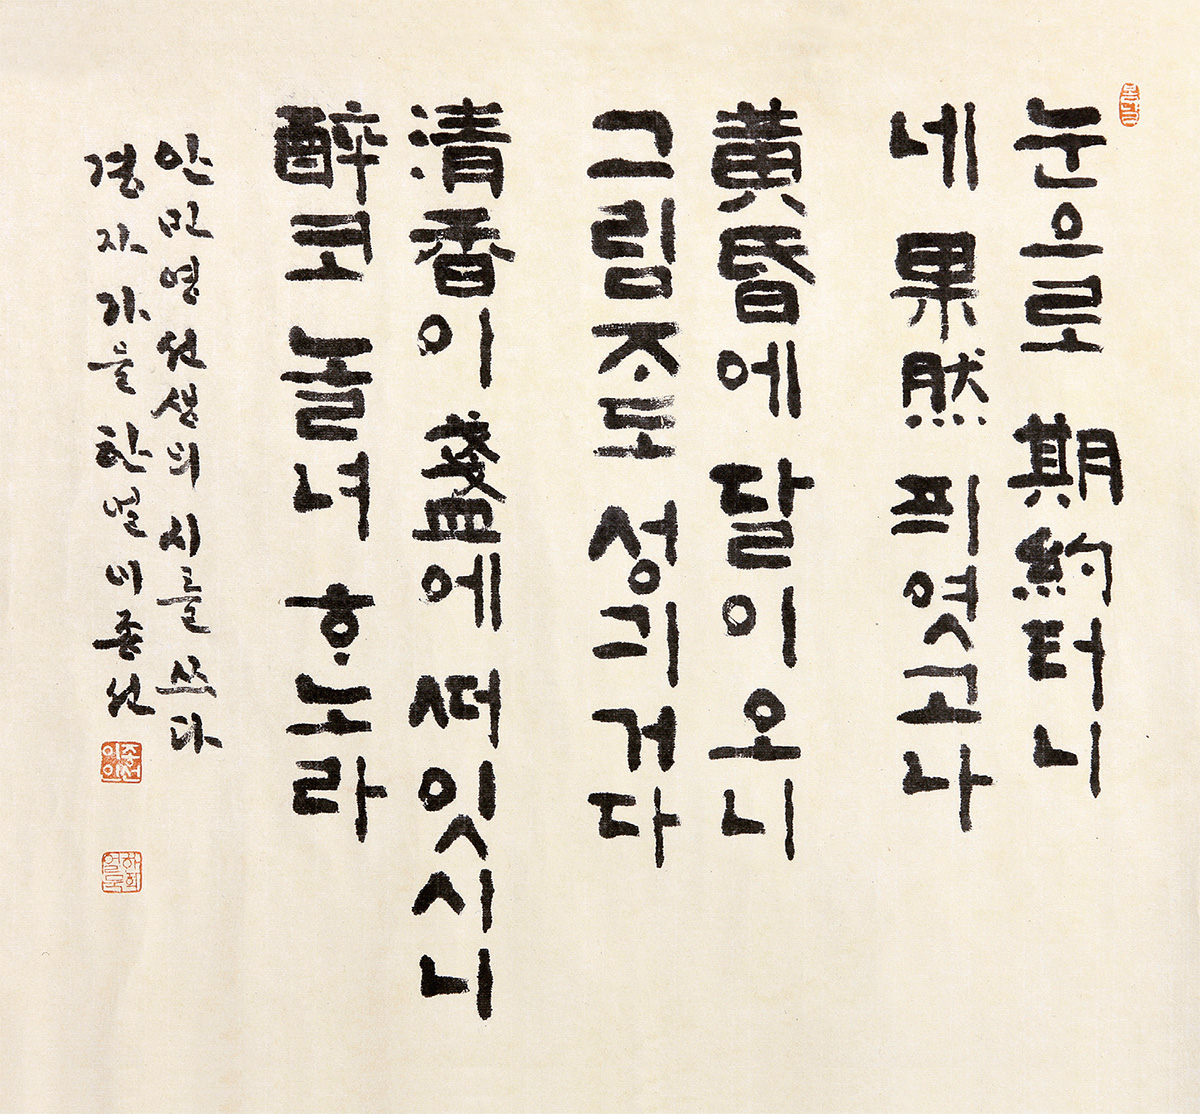 눈으로 期約터니
네 果然 픠엿고나
黃昏에 달이 오니
그림ᄌᆞ도 성긔거다
清香이 盞에 ᄯᅥ 잇시니
醉코 놀녀 ᄒᆞ노라
안민영 선생의 시를 쓰다
경자가을 한얼 이종선